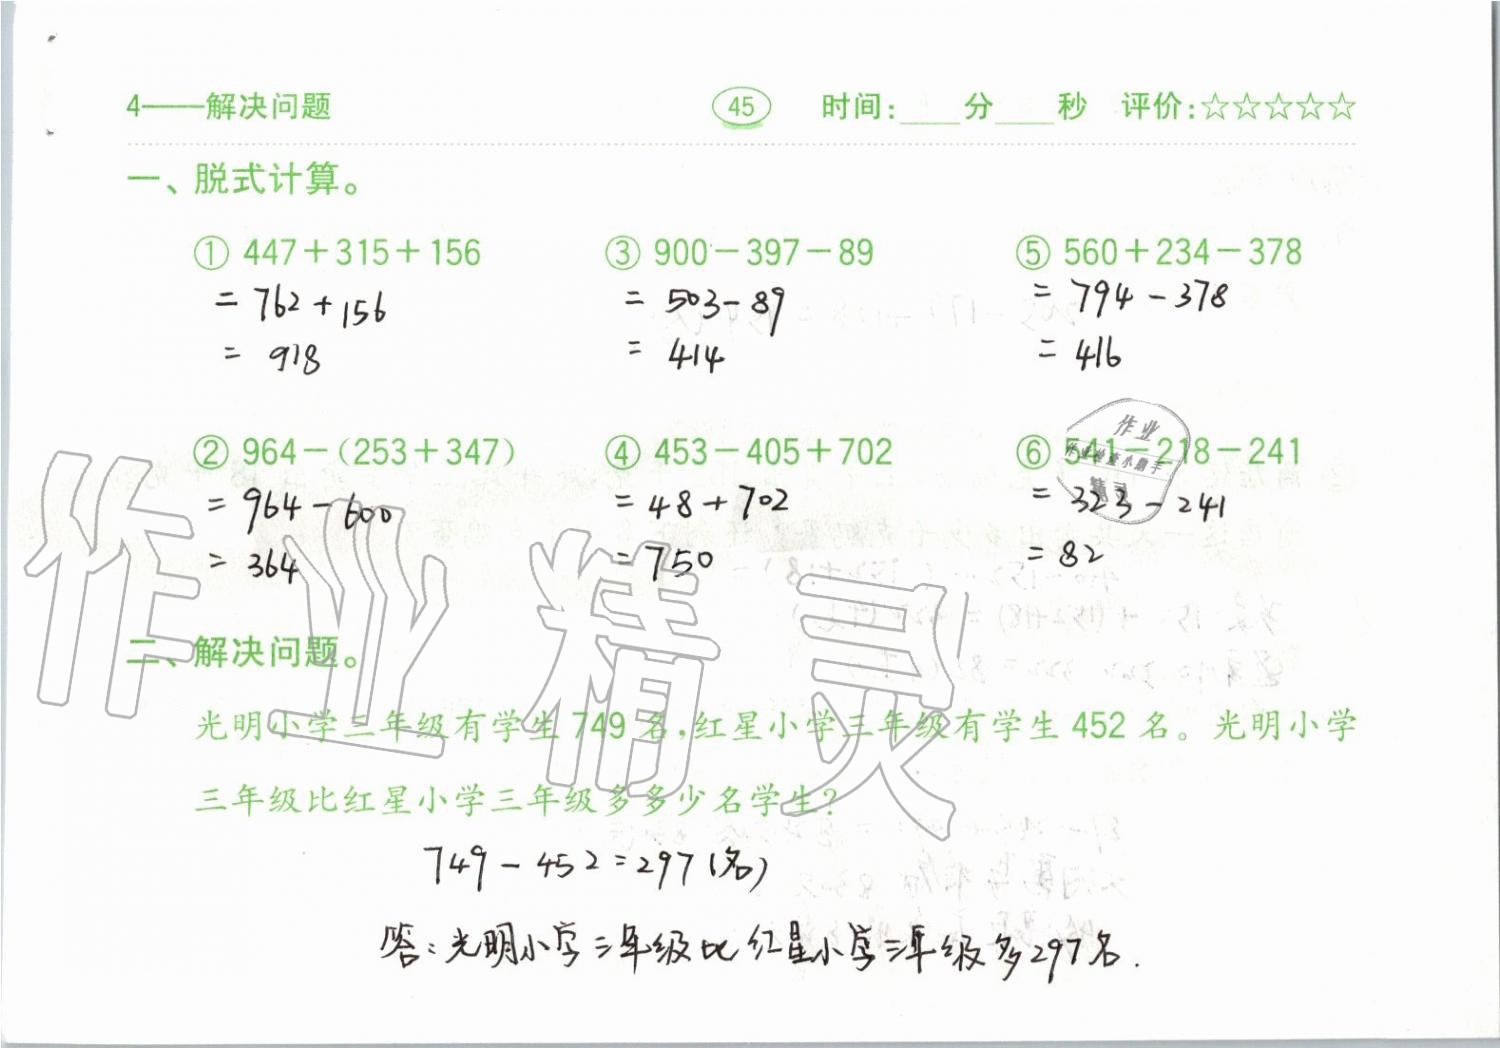 4——解决问题 45 时间:____分____秒 评价:☆☆☆☆☆
一、脱式计算。
① 447＋315＋156 ③ 900－397－89 ⑤ 560＋234－378
= 762 + 156 = 503 - 89 = 794 - 378
= 918 = 414 = 416
② 964－(253＋347) ④ 453－405＋702 ⑥ 541－218－241
= 964 - 600 = 48 + 702 = 323 - 241
= 364 = 750 = 82
作业
精灵
作业精灵
二、解决问题。
光明小学三年级有学生 749 名,红星小学三年级有学生 452 名。光明小学
三年级比红星小学三年级多多少名学生?
749 - 452 = 297 (名)
答:光明小学三年级比红星小学三年级多297名.